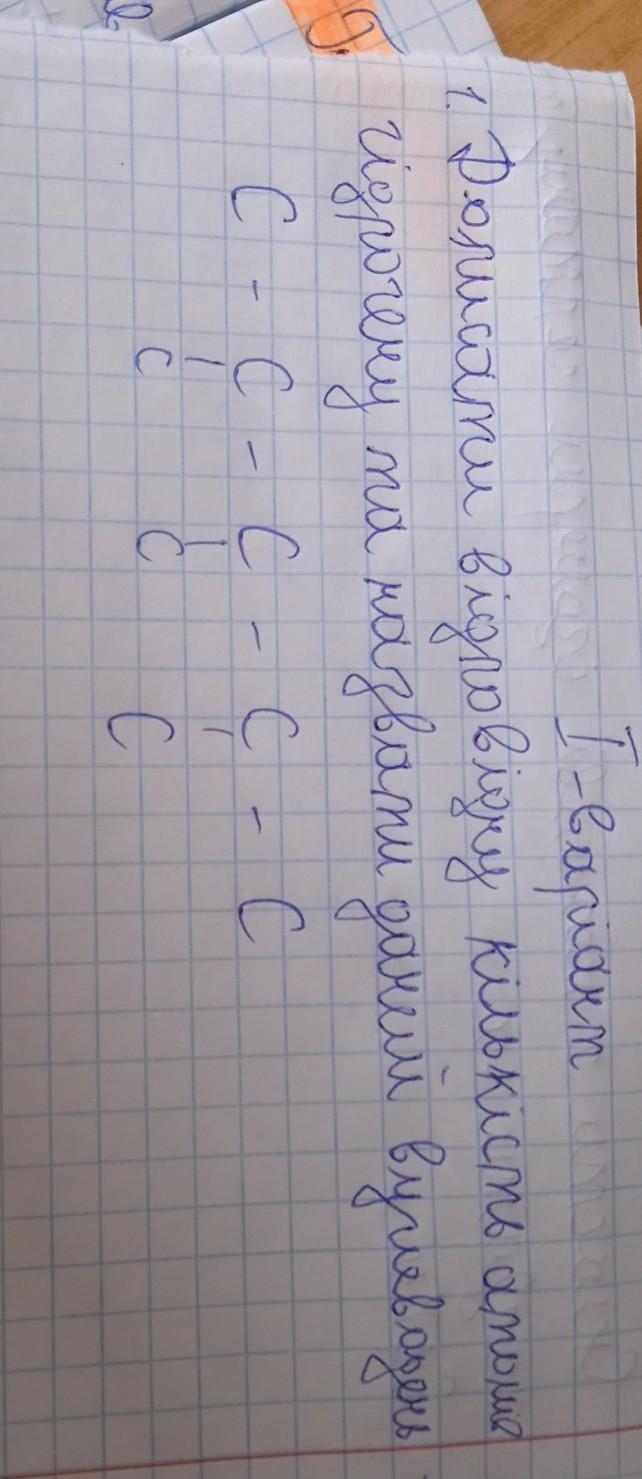 I - варіант
1. Дописати відповідну кількість атомів
гідрогену та назвати даний вуглеводень
C - C - C - C - C
C C C